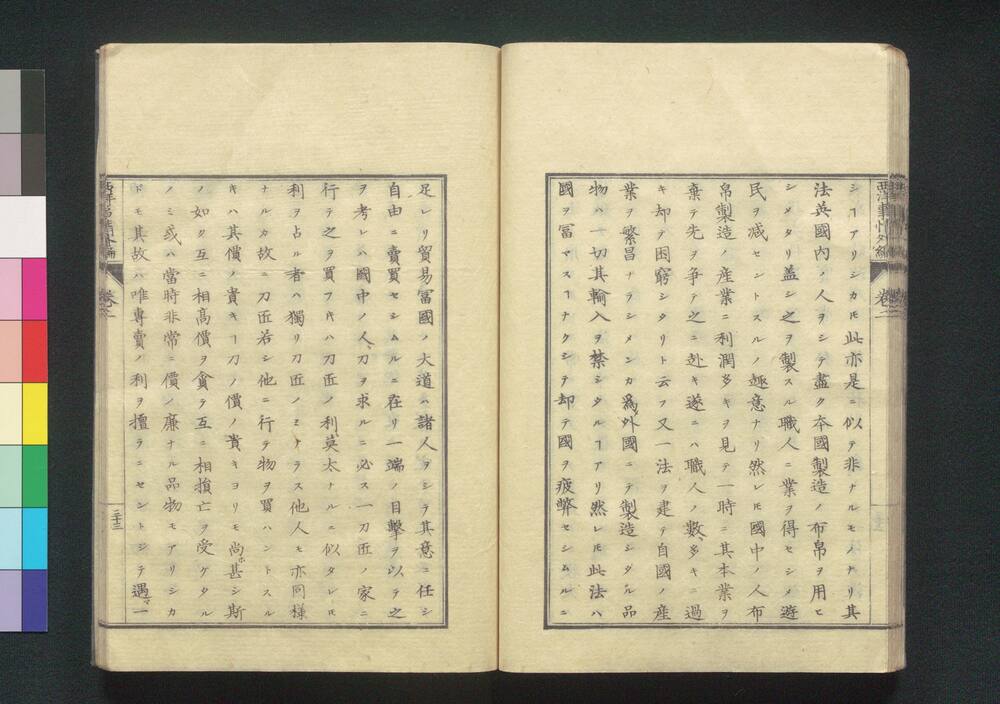 シヿアリシカ𪜈此亦是ニ似テ非ナルモノナリ其
法英國内ノ人ヲシテ盡ク本國製造ノ布帛ヲ用ヒ
シメタリ蓋シ之ヲ製スル職人ニ業ヲ得セシメ遊
民ヲ减セントスルノ趣意ナリ然レ𪜈國中ノ人布
帛製造ノ産業ニ利潤多キヲ見テ一時ニ其本業ヲ
棄テ先ヲ爭テ之ニ赴キ遂ニハ職人ノ數、多キニ過
キ却テ困窮シタリト云フ又一法ヲ建テ自國ノ産
業ヲ繁昌ナラシメンカ爲、外國ニテ製造シタル品
物ハ一切其輸入ヲ禁シタルヿアリ然レ𪜈此法ハ
國ヲ冨マスヿナクシテ却テ國ヲ疲弊セシムルニ
西洋事情外編
卷二
足レリ貿易冨國ノ大道ハ諸人ヲシテ其意ニ任シ
自由ニ賣買セシムルニ在リ一端ノ目擊ヲ以テ之
ヲ考レハ國中ノ人、刀ヲ求ルニ必ス一刀匠ノ家ニ
行テ之ヲ買フ𪜈ハ刀匠ノ利、莫太ナルニ似タレ𪜈
利ヲ占ル者ハ獨リ刀匠ノミナラス他人モ亦同樣
ナルカ故ニ刀匠若シ他ニ行テ物ヲ買ハントスル
𪜈ハ其價ノ貴キヿ刀ノ價ノ貴キヨリモ尚ホ甚シ斯
ノ如ク互ニ相高價ヲ貪テ互ニ相損亡ヲ受ケタル
ノミ或ハ當時非常ニ價ノ廉ナル品物モアリシカ
ド𪜈其故ハ唯專賣ノ利ヲ擅ラニセントシテ遇マ一
二十三
西洋事情外編
卷二